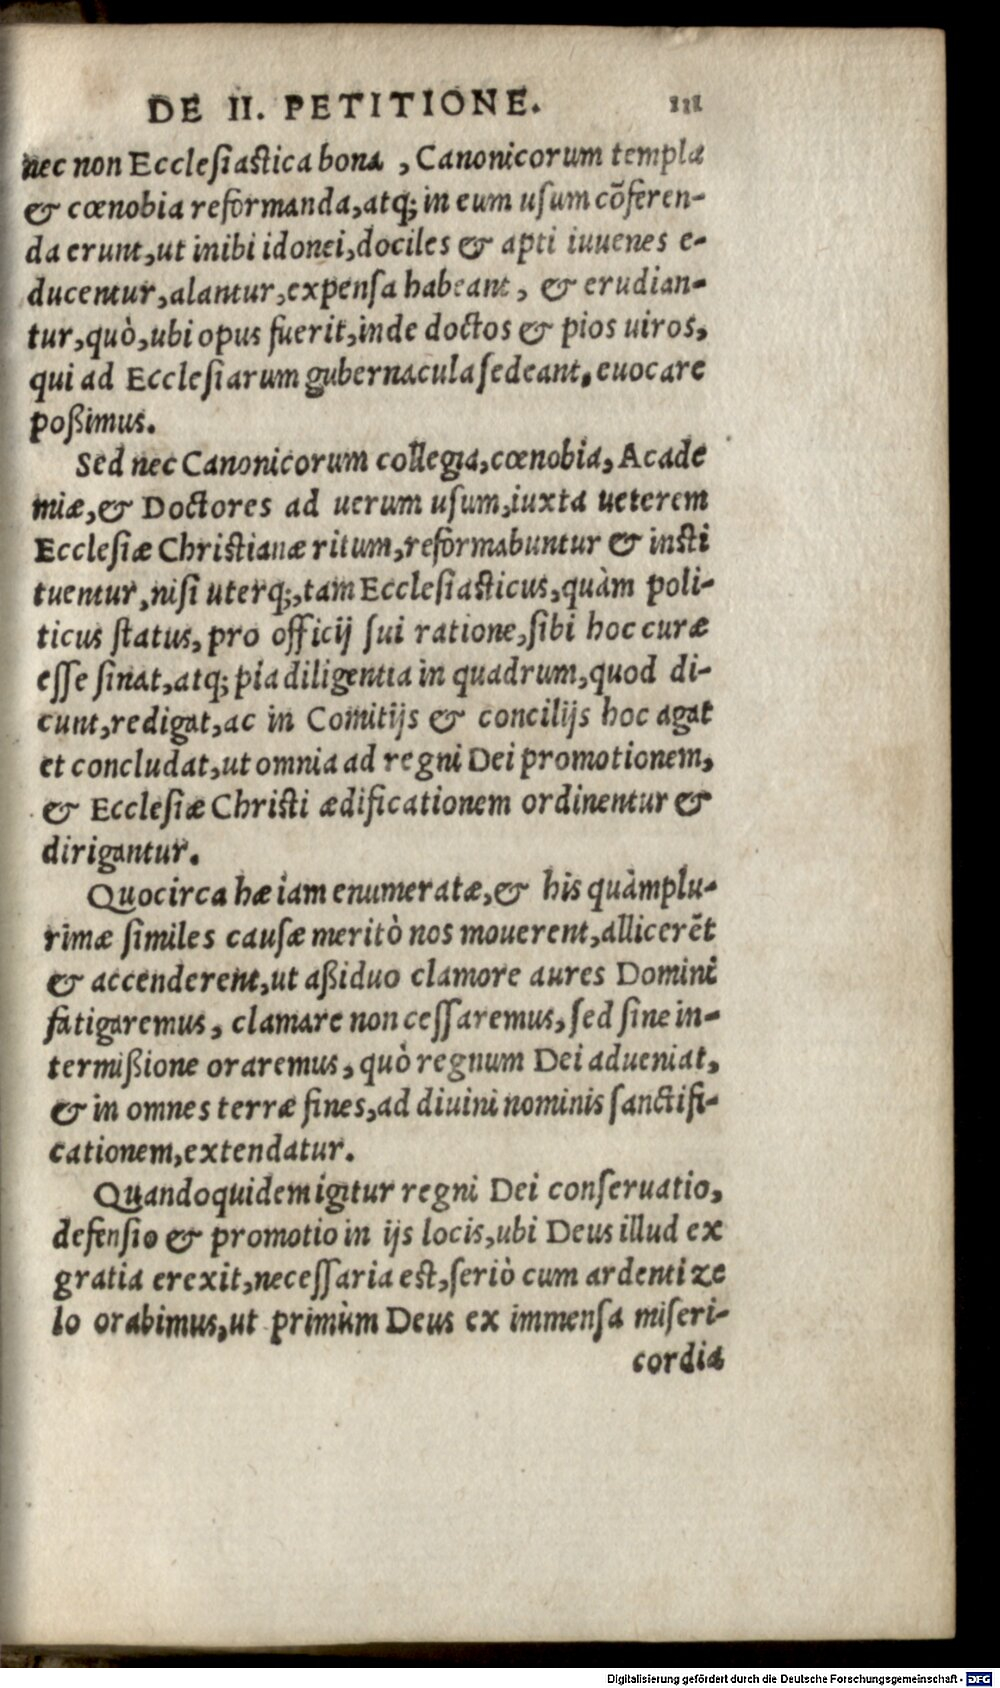 DE II. PETITIONE. 111
nec non Ecclesiastica bona , Canonicorum templa
& cœnobia reformanda, atq; in eum usum cõferen-
da erunt, ut inibi idonei, dociles & apti iuuenes e-
ducentur, alantur, expensa habeant, & erudian-
tur, quò, ubi opus fuerit, inde doctos & pios uiros,
qui ad Ecclesiarum gubernacula sedeant, euocare
poßimus.
Sed nec Canonicorum collegia, cœnobia, Acade
miæ, & Doctores ad uerum usum, iuxta ueterem
Ecclesiæ Christianæ ritum, reformabuntur & insti
tuentur, nisi uterq;, tam Ecclesiasticus, quàm poli-
ticus status, pro officij sui ratione, sibi hoc curæ
esse sinat, atq; pia diligentia in quadrum, quod di-
cunt, redigat, ac in Comitijs & concilijs hoc agat
et concludat, ut omnia ad regni Dei promotionem,
& Ecclesiæ Christi ædificationem ordinentur &
dirigantur.
Quocirca hæ iam enumeratæ, & his quàmplu-
rimæ similes causæ meritò nos mouerent, allicerẽt
& accenderent, ut aßiduo clamore aures Domini
fatigaremus, clamare non cessaremus, sed sine in-
termißione oraremus, quò regnum Dei adueniat,
& in omnes terræ fines, ad diuini nominis sanctifi-
cationem, extendatur.
Quandoquidem igitur regni Dei conseruatio,
defensio & promotio in ijs locis, ubi Deus illud ex
gratia erexit, necessaria est, seriò cum ardenti ze
lo orabimus, ut primùm Deus ex immensa miseri-
cordia
Digitalisierung gefördert durch die Deutsche Forschungsgemeinschaft - DFG